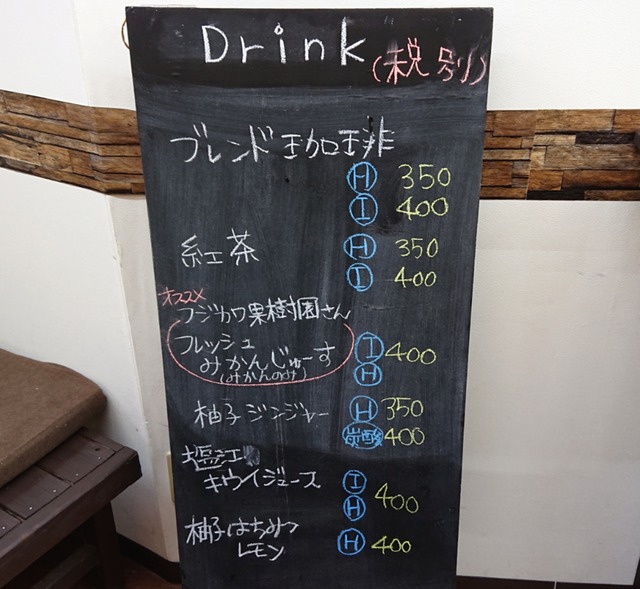 Drink (税別)
ブレンド珈琲
Ⓗ 350
Ⓘ 400
紅茶 Ⓗ 350
Ⓘ 400
オススメ
フジカワ果樹園さん
フレッシュ
みかんじゅーす Ⓘ Ⓗ 400
(みかんのみ)
柚子ジンジャー Ⓗ 350
炭酸 400
塩江
キウイジュース Ⓘ Ⓗ 400
柚子はちみつ
レモン Ⓗ 400